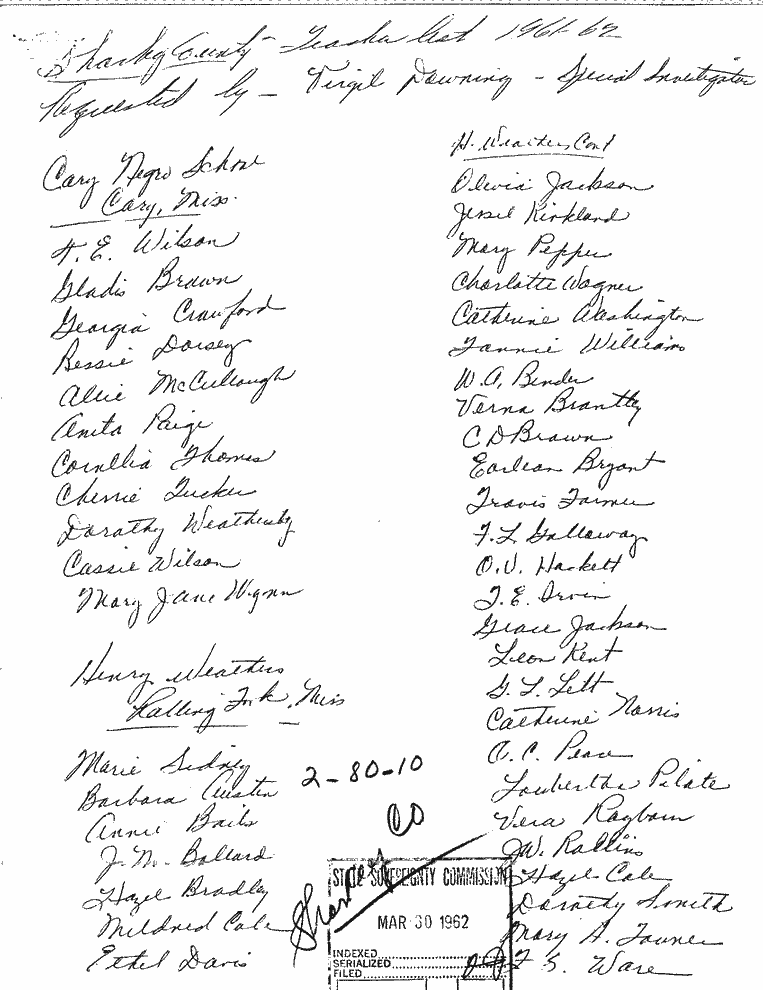 Sharkey County - Teacher List 1961-62
Requested by - Virgil Downing - Special Investigator
Cary Negro School
Cary, Miss.
H. E. Wilson
Gladis Brown
Georgia Crawford
Bessie Dorsey
Allie McCullough
Anita Paige
Cornellia Thomas
Cherrie Tucker
Dorathy Weathersby
Cassie Wilson
Mary Jane Wynn
Henry Weathers
Rolling Fork, Miss
Marie Sidney
Barbara Austin
Annie Bails
J. N. Ballard
Hazel Bradley
Mildred Cole
Ethel Davis
H. Weathers Cont
Olevia Jackson
Jessie Kirkland
Mary Pepper
Charlotte Wagner
Catherine Washington
Fannie Williams
W. A. Bender
Verna Brantley
C D Brown
Earlean Bryant
Travis Farmer
F. L. Galloway
O. V. Hackett
T. E. Irvin
Grace Jackson
Leon Kent
G. L. Lett
Catherine Norris
A. C. Peace
Loubertha Pilate
Vera Rayborn
J. W. Rollins
Hazel Cole
Dorothy Smith
Mary A. Towner
F. S. Ware
2-80-10
Sharkey Co
STATE SOVEREIGNTY COMMISSION
MAR 30 1962
INDEXED
SERIALIZED
FILED